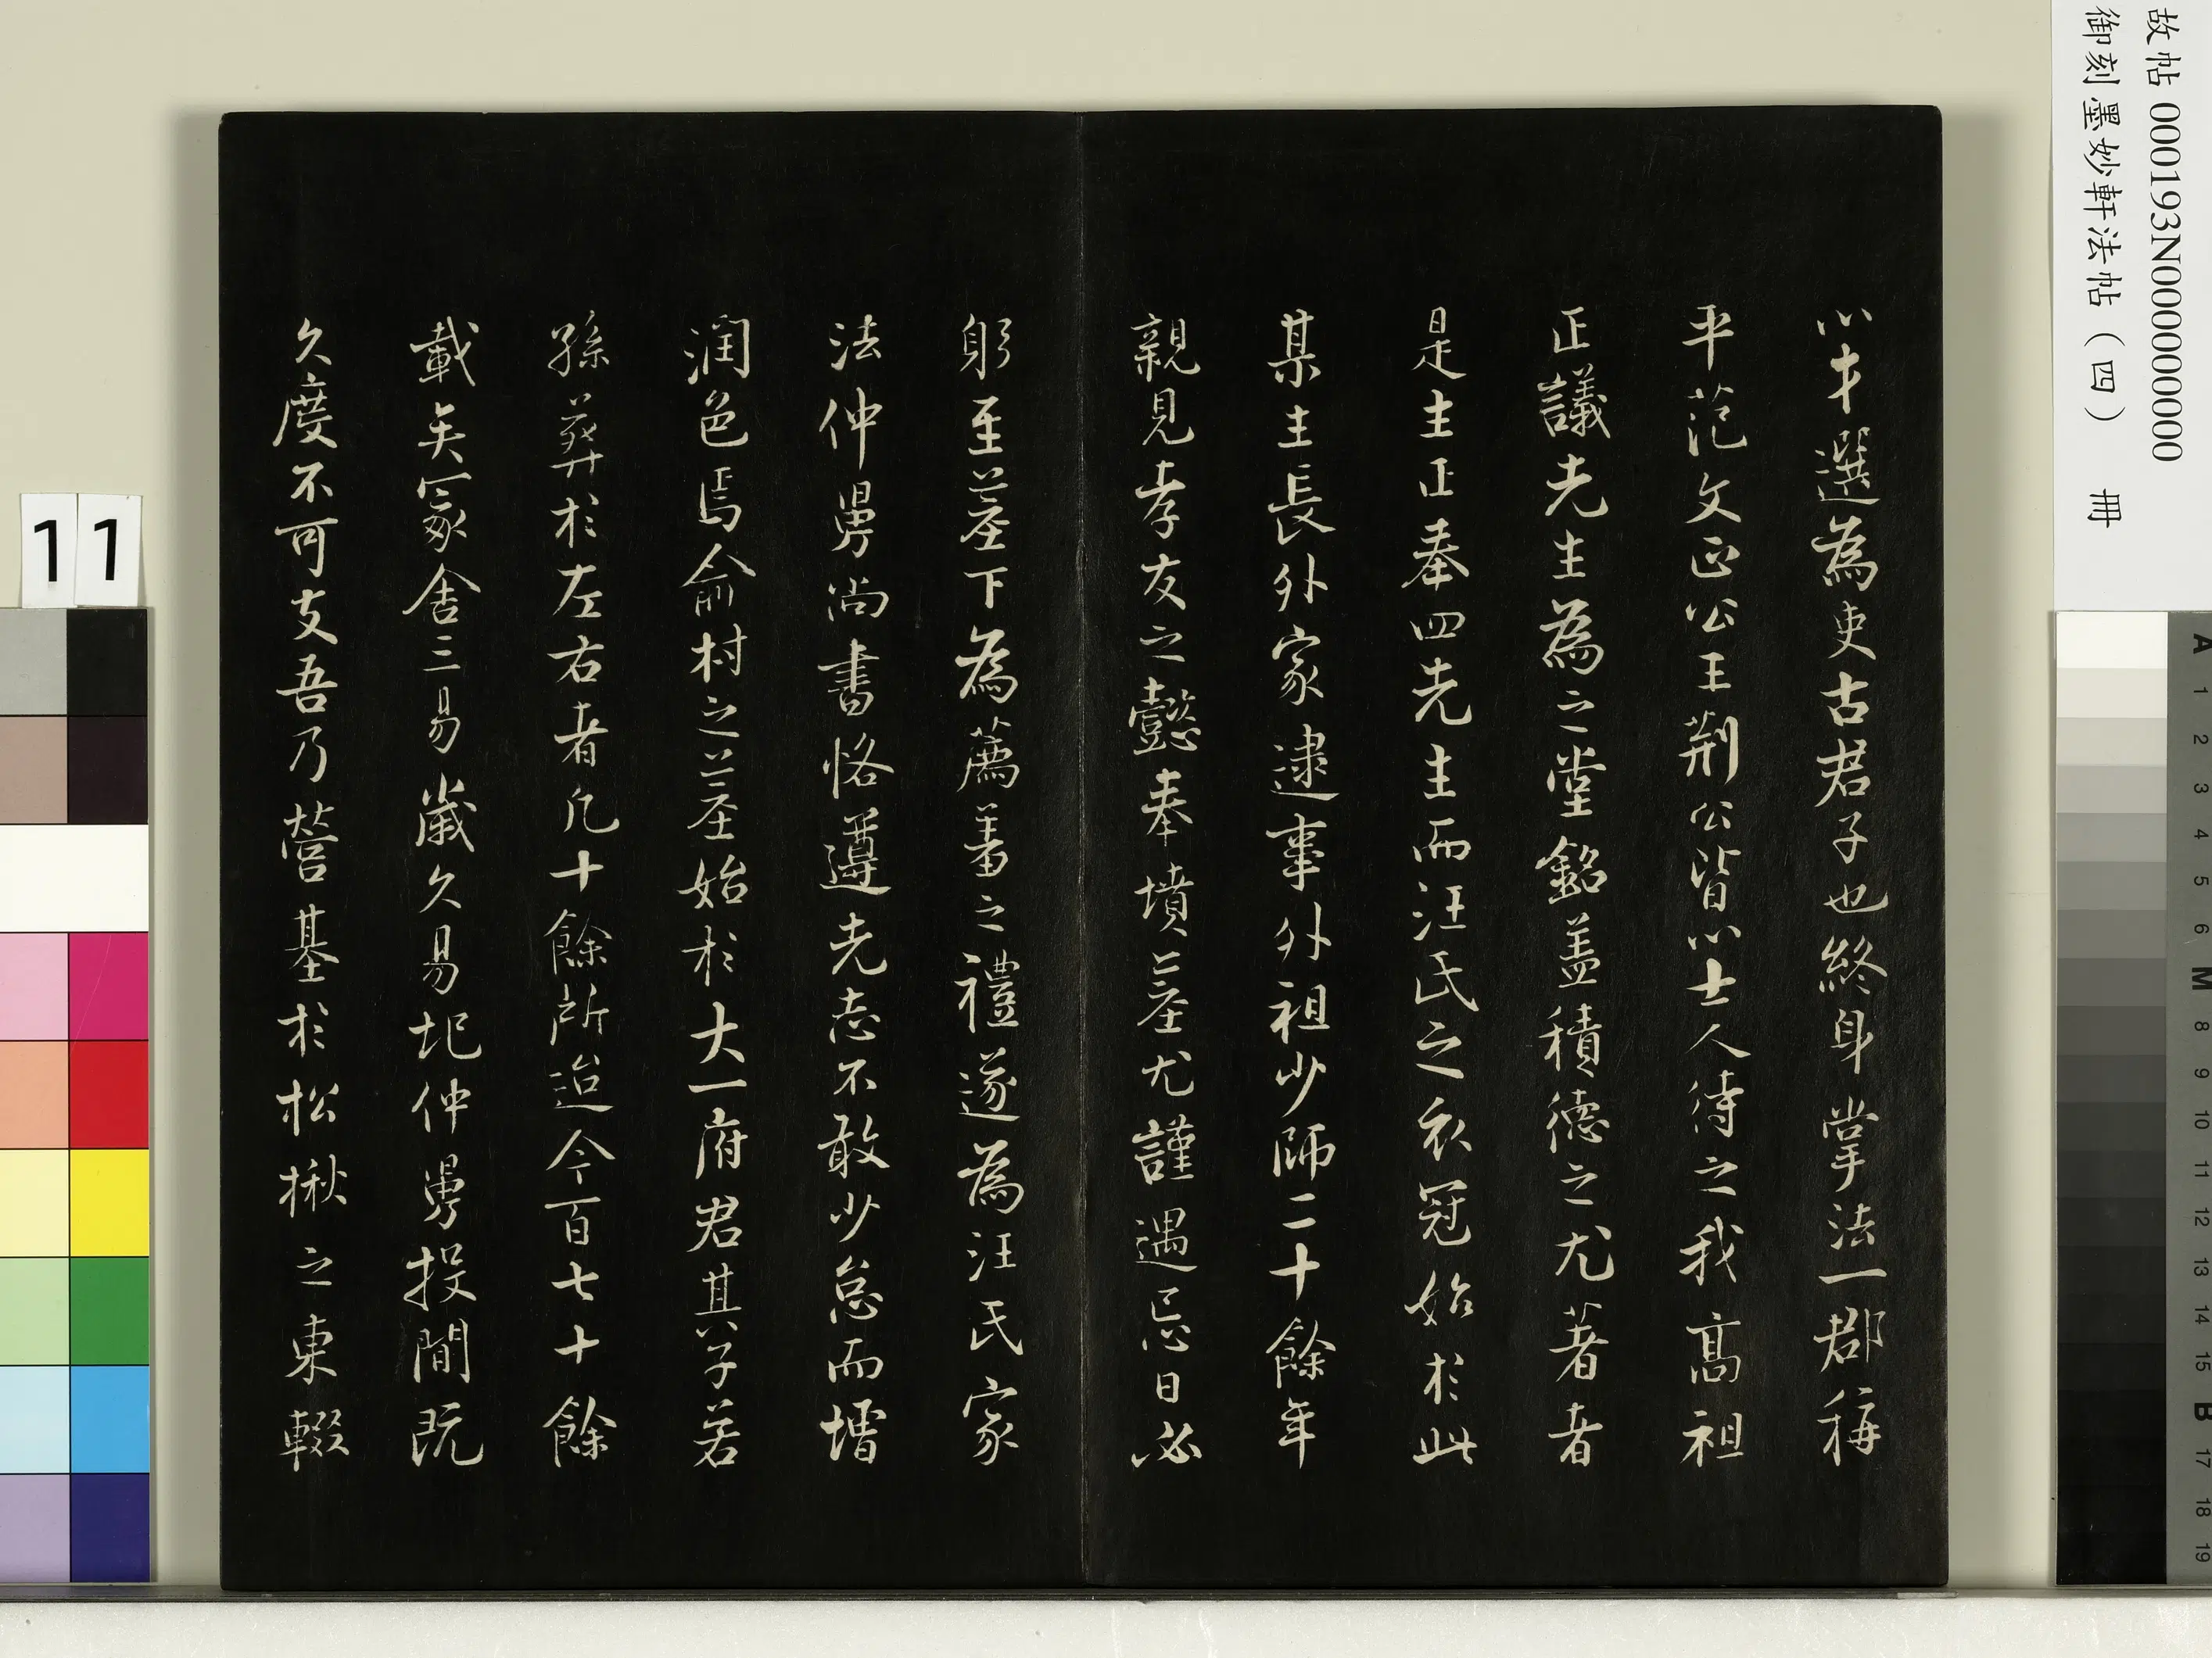 故帖 000193N000000000
御刻墨妙軒法帖（四） 冊
以才選為吏古君子也終身掌法一郡稱
平范文正公王荆公皆以士人待之我高祖
正議先生為之堂銘盖積德之尤著者
是生正奉四先生而汪氏之衣冠始於此
某生長外家逮事外祖少師二十餘年
親見孝友之懿奉墳墓尤謹遇忌日必
躬至墓下為薦羞之禮遂為汪氏家
法仲舅尚書恪遵先志不敢少怠而增
潤色焉俞村之墓始於大一府君其子若
孫葬於左右者凡十餘所迨今百七十餘
載矣冢舍三易歲久易圮仲舅投閒既
久度不可支吾乃營基於松楸之東輟
11
A 1 2 3 4 5 6 M 8 9 10 11 12 13 14 15 B 17 18 19